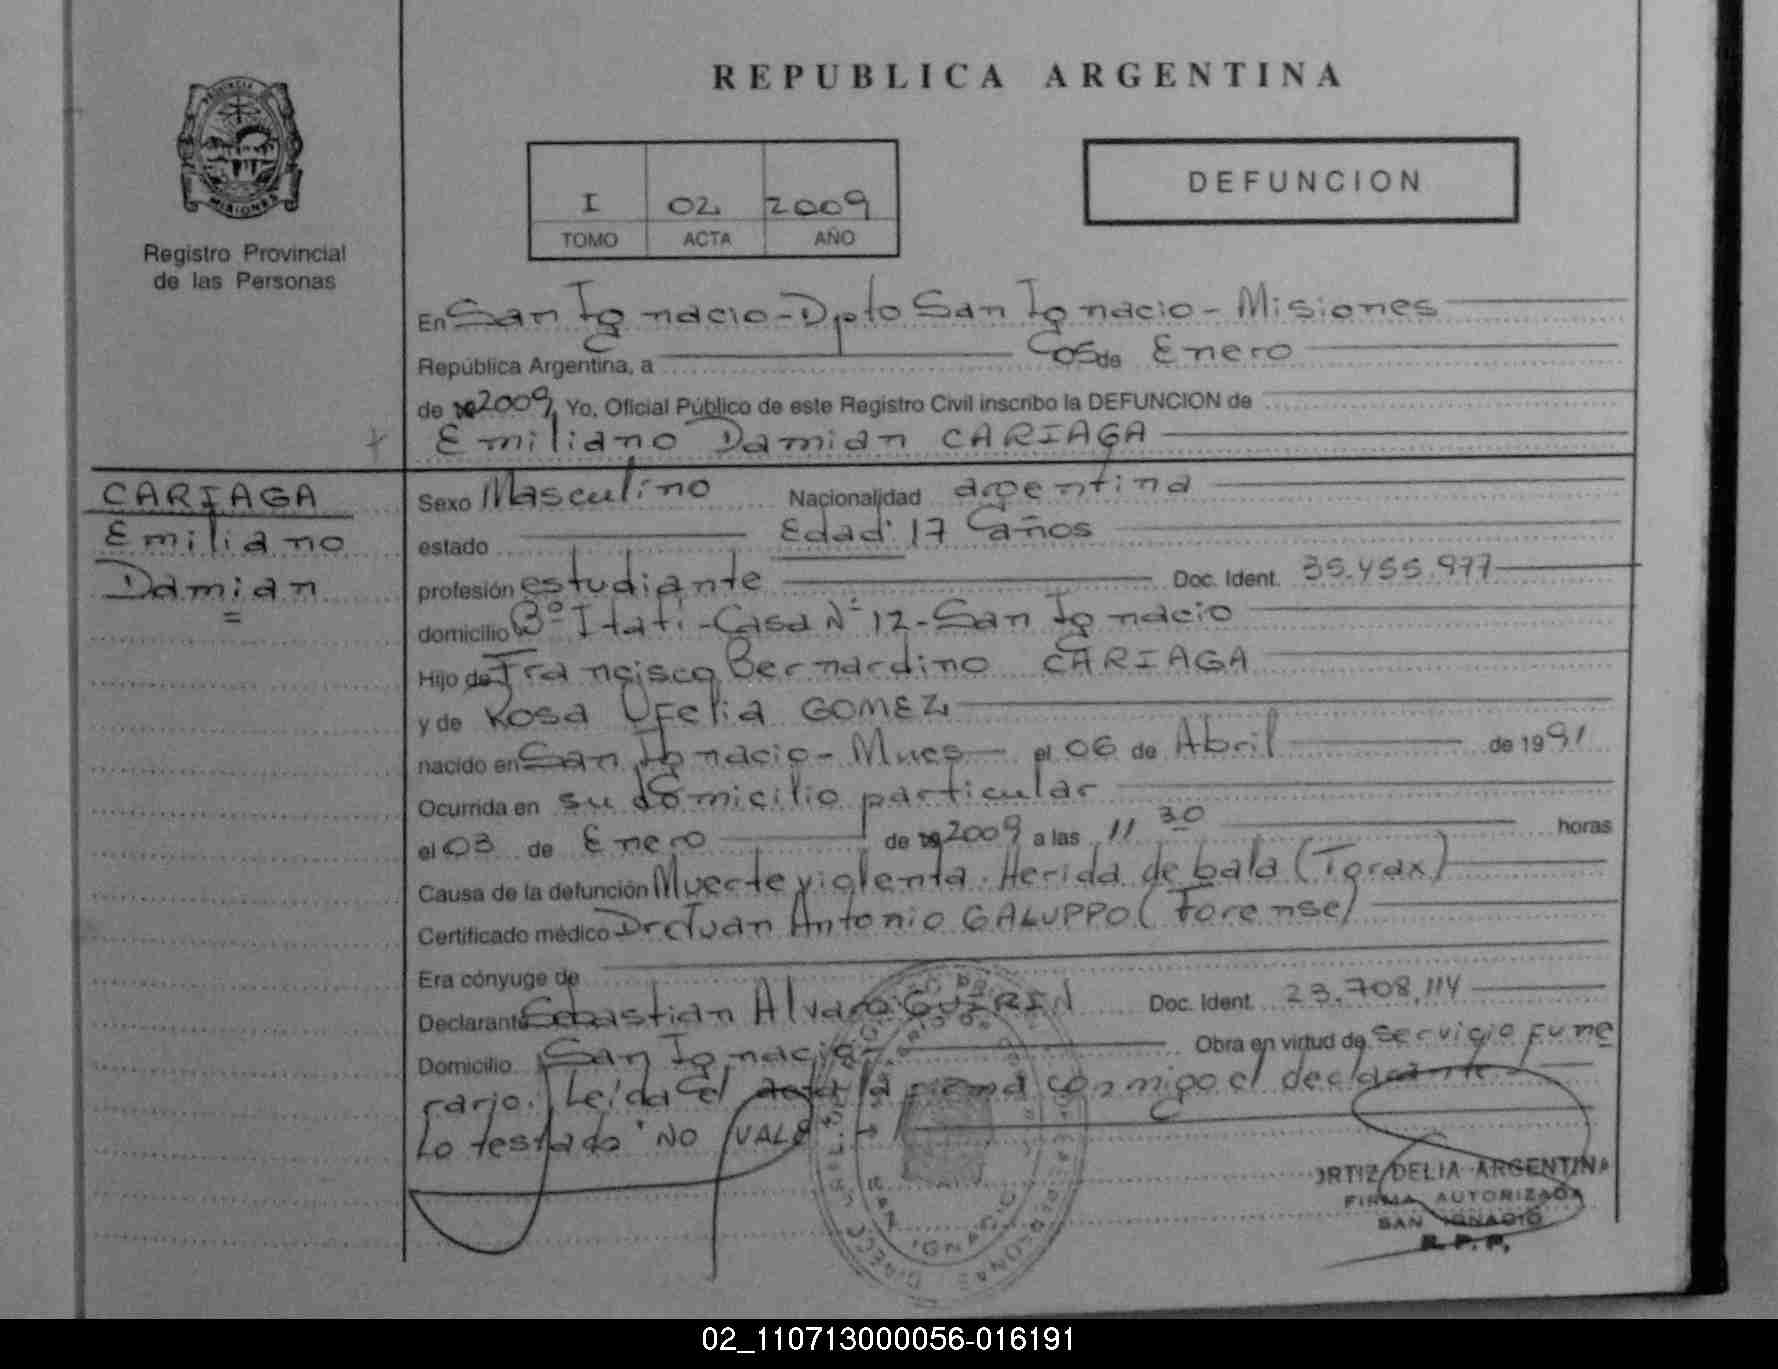 REPUBLICA ARGENTINA
PROVINCIA
MISIONES
Registro Provincial
de las Personas
I 02 2009
TOMO ACTA AÑO
DEFUNCION
En San Ignacio - Dpto San Ignacio - Misiones
República Argentina, a Cosde Enero
de 2009 Yo, Oficial Público de este Registro Civil inscribo la DEFUNCION de
Emiliano Damian CARIAGA
CARIAGA
Emiliano
Damian
Sexo Masculino Nacionalidad argentina
estado Edad: 17 años
profesión estudiante Doc. Ident. 35.455.977
domicilio Bº Itati - Casa Nº 12 - San Ignacio
Hijo de Francisco Bernardino CARIAGA
y de Rosa Ofelia GOMEZ
nacido en San Ignacio - Mnes el 06 de Abril de 1991
Ocurrida en su domicilio particular
el 03 de Enero de 2009 a las 11 30 horas
Causa de la defunción Muerte violenta. Herida de bala (Torax)
Certificado médico Dr Juan Antonio GALUPPO (Forense)
Era cónyuge de
Declarante Sebastian Alvaro GUIRIN Doc. Ident. 23.708.114
Domicilio San Ignacio Obra en virtud de servicio fune
rario. Leida el acta la firma conmigo el declarante
Lo testado "NO VALE
ORTIZ DELIA ARGENTINA
FIRMA AUTORIZADA
SAN IGNACIO
R. P. P.
SAN IGNACIO
02_110713000056-016191